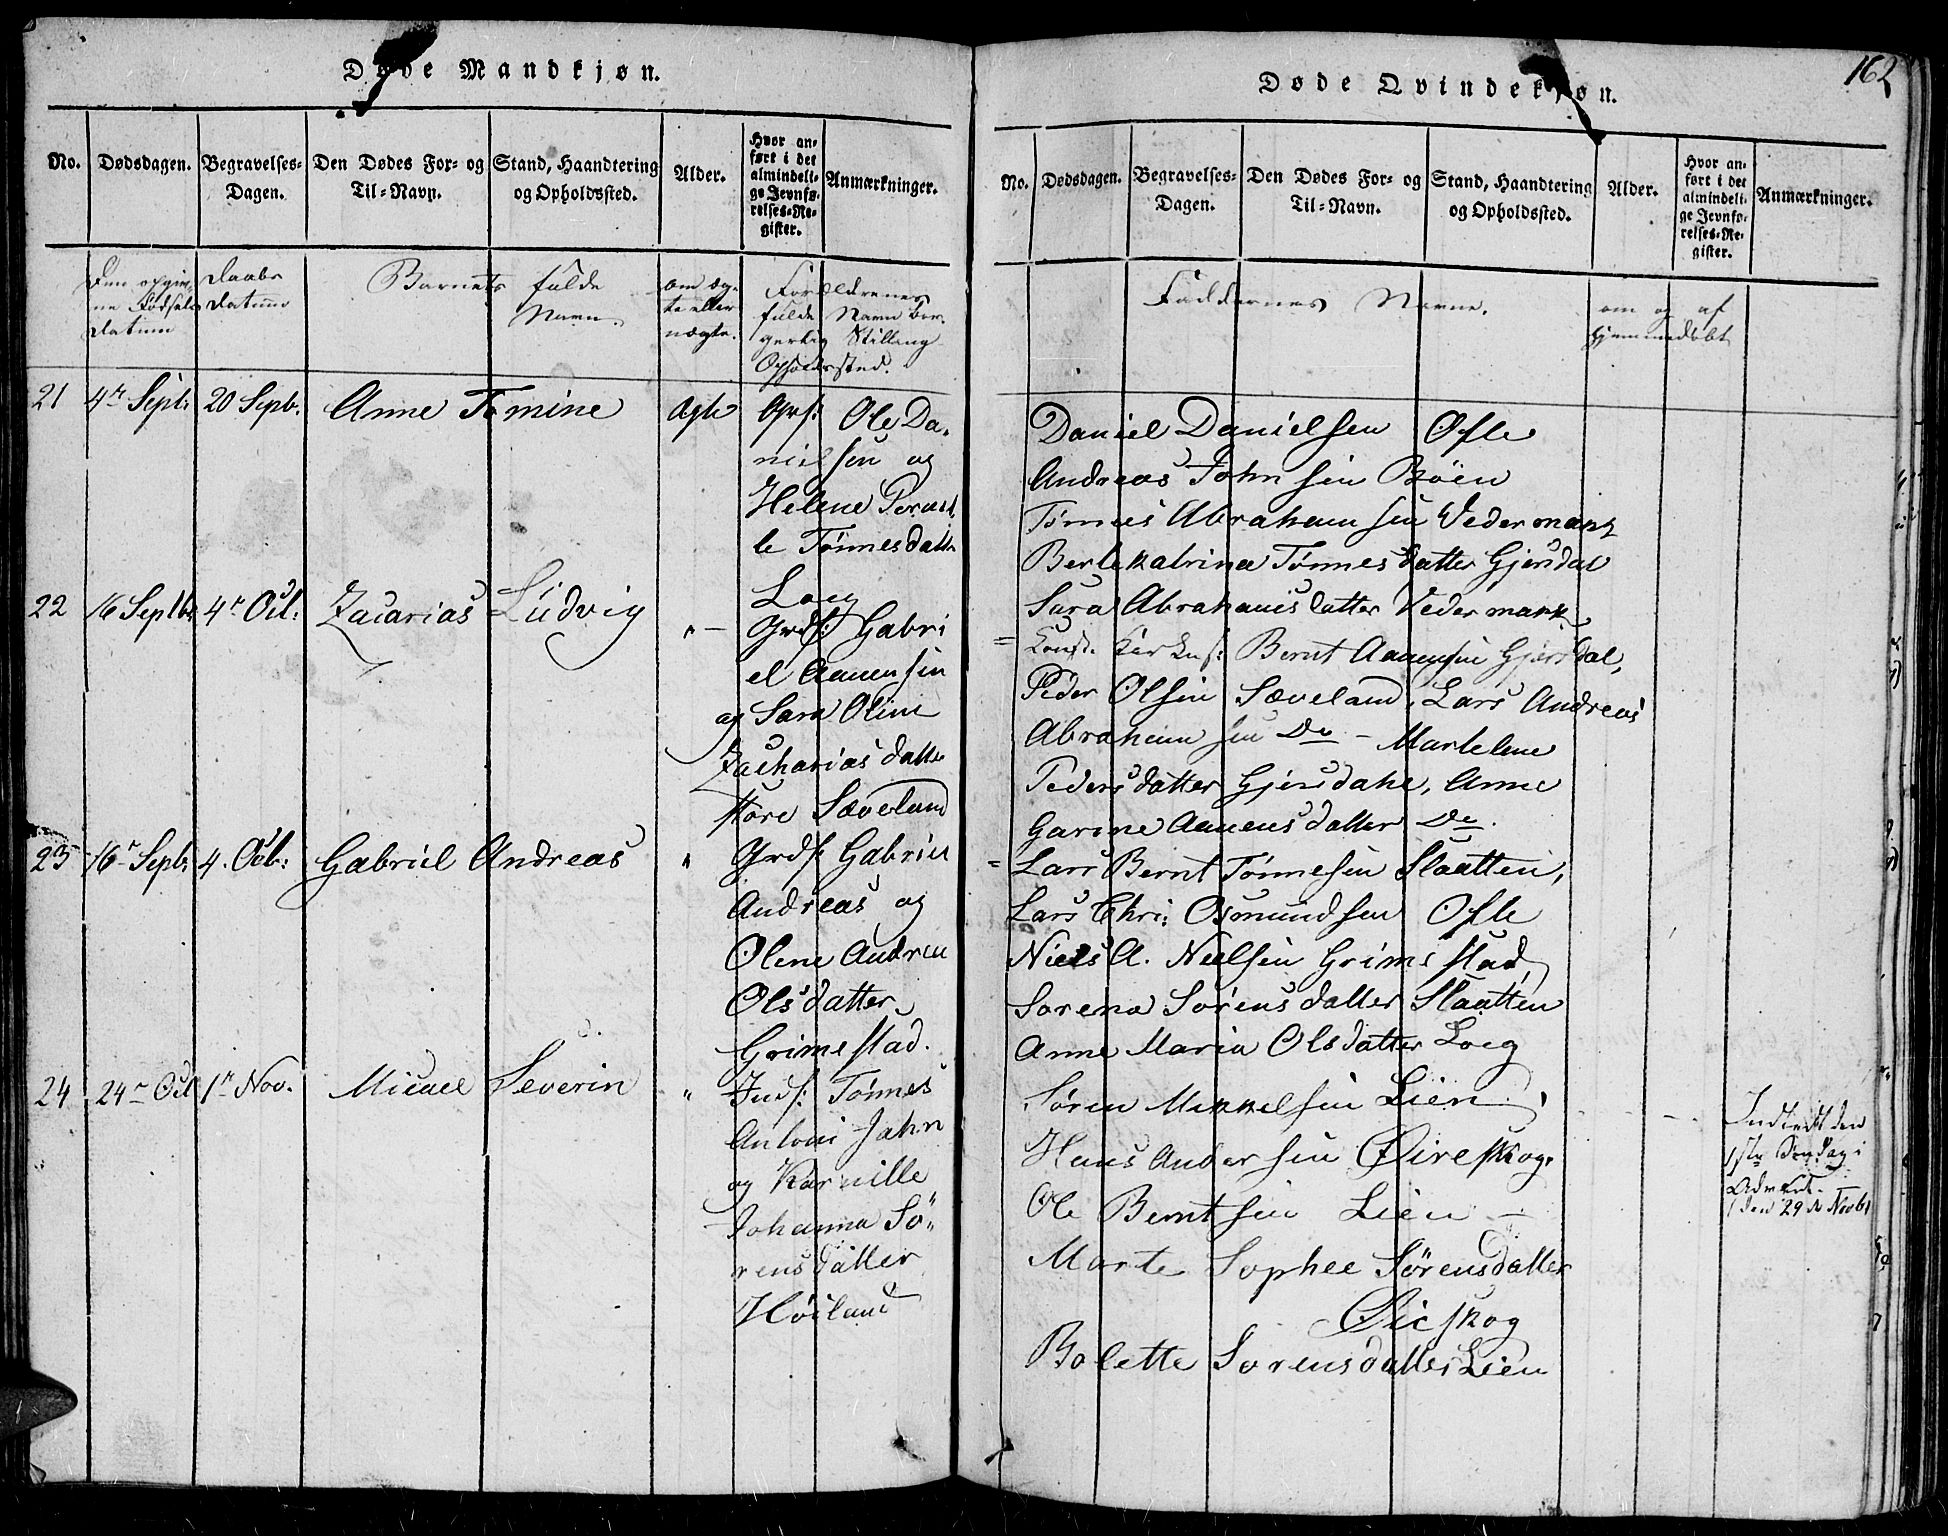 Døde Mandkjøn.
No. Dødsdagen. Begravelses-Dagen. Den Dødes For- og Til-Navn. Stand, Haandtering og Opholdssted. Alder. Hvor anført i det almindelige Jevnførelses-Register. Anmærkninger.
Den opgivne Fødsels Datum
Daabs Datum
Barnets fulde Navn.
om ægte eller uægte.
Forældrenes fulde Navn borgerlig Stilling Opholdssted.
21 4de Septr 20 Septr. Anne Tomine Ægte Grf: Ole Da-
nielsen og
Helene Pernil
le Tønnesdatter
Loeg
22 16 Septbr 4de Oct: Zacarias Ludvig " — Grdf: Gabri
el Aanensen
og Sara Oline
Zachariasdatter
store Sæveland
23 16de Septr 4. Oct: Gabriel Andreas " Grdf: Gabriel
Andreas og
Olene Andrea
Olsdatter
Grimestad.
24 24de Oct 1ste Nov. Micael Severin " Indf: Tønnes
Antoni Jahn
og Karnille
Johanna Sö-
rensdatter
Höiland
Døde Qvindekjøn.
162
No. Dødsdagen. Begravelses-Dagen. Den Dødes For- og Til-Navn. Stand, Haandtering og Opholdssted. Alder. Hvor anført i det almindelige Jevnførelses-Register. Anmærkninger.
Faddernes Navne.
om og af hjemmedøbt
Daniel Danielsen Øfle
Andreas Johnsen Böen
Tønnes Abrahamsen Vedermark
Bertekatrina Tønnesdatter Gjersdal
Sara Abrahamsdatter Vedermark
= Const. Kirkes: Bernt Aanensen Gjersdal,
Peder Olsen Sæveland, Lars Andreas
Abrahamsen Do – Martelene
Pedersdatter Gjersdahl, Anne
Garine Aanensdatter Do.
= Lars Bernt Tønnesen Slaatten,
Lars Chri: Osmundsen Øfle
Niels A. Nielsen Grimestad,
Sorena Sörensdatter Slaatten
Anne Maria Olsdatter Loeg
Søren Mikkelsen Lien,
Hans Andersen Øieskog.
Ole Berntsen Lien –
Marte Sophee Sørensdatter
Øieskog
Bolette Sorensdatter Lien
Indledt den
1ste Søndag i
Advent
den 29de Novb